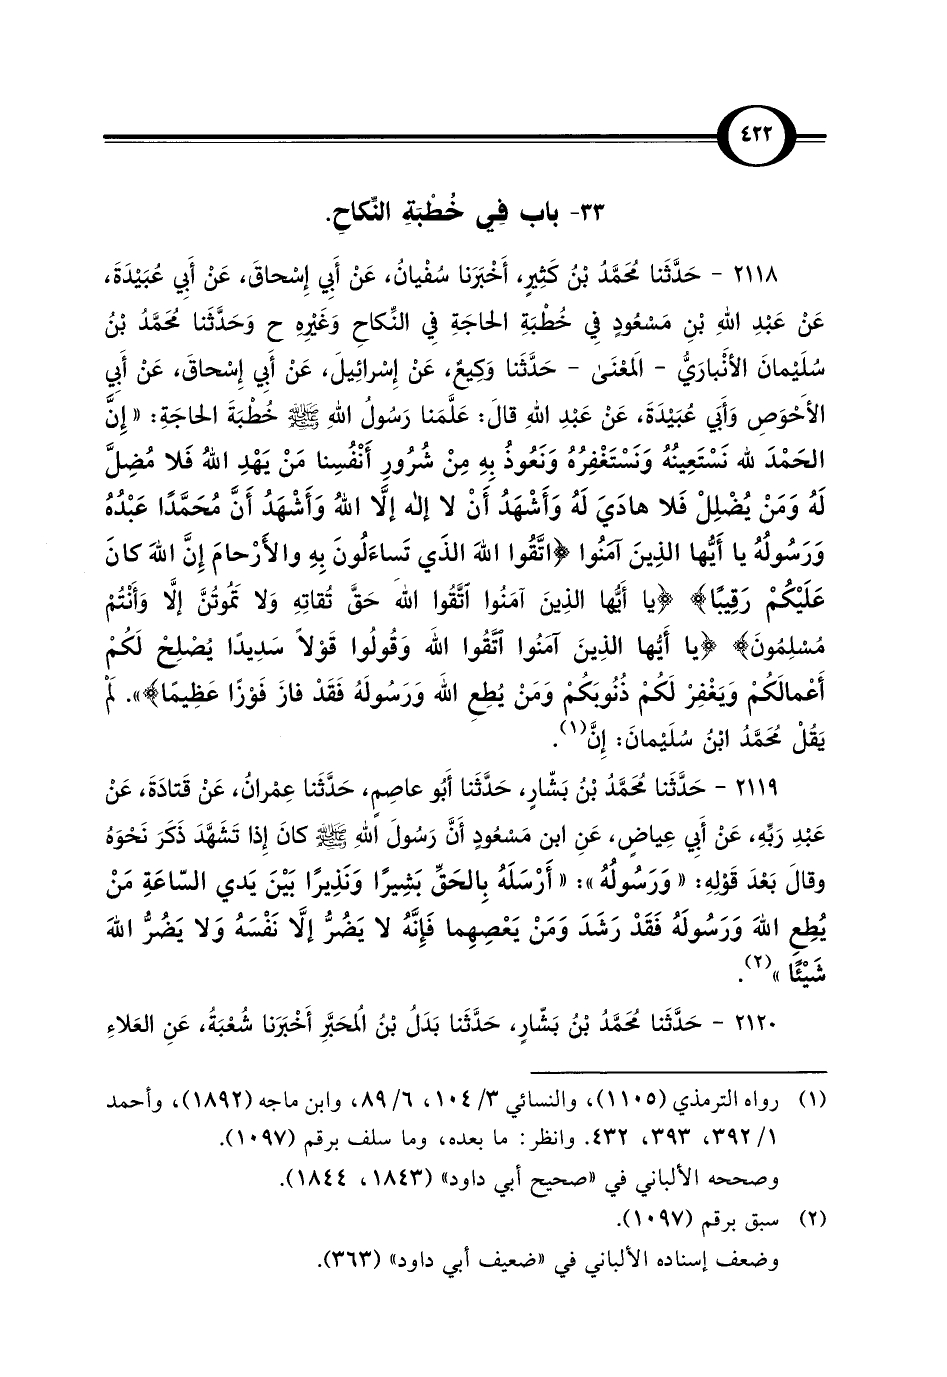 ٤٢٢
٣٣- باب فِي خُطْبَةِ النِّكاحِ.
٢١١٨ - حَدَّثَنا مُحَمَّدُ بْنُ كَثِيرٍ، أَخْبَرَنا سُفْيانُ، عَنْ أَبِي إِسْحاقَ، عَنْ أَبِي عُبَيْدَةَ،
عَنْ عَبْدِ اللهِ بْنِ مَسْعُودٍ فِي خُطْبَةِ الحاجَةِ فِي النِّكاحِ وَغَيْرِهِ ح وَحَدَّثَنا مُحَمَّدُ بْنُ
سُلَيْمانَ الأَنْبارَيُّ - المَعْنَى - حَدَّثَنا وَكِيعٌ، عَنْ إِسْرائِيلَ، عَنْ أَبِي إِسْحاقَ، عَنْ أَبِي
الأَحْوَصِ وَأَبِي عُبَيْدَةَ، عَنْ عَبْدِ اللهِ قالَ: عَلَّمَنا رَسُولُ اللهِ ﷺ خُطْبَةَ الحاجَةِ: « إِنَّ
الحَمْدَ لله نَسْتَعِينُهُ وَنَسْتَغْفِرُهُ وَنَعُوذُ بِهِ مِنْ شُرُورِ أَنْفُسِنا مَنْ يَهْدِ اللهُ فَلا مُضِلَّ
لَهُ وَمَنْ يُضْلِلْ فَلا هادَيَ لَهُ وَأَشْهَدُ أَنْ لا إله إلَّا اللهُ وَأَشْهَدُ أَنَّ مُحَمَّدًا عَبْدُهُ
وَرَسُولُهُ يا أَيُّها الذِينَ آمَنُوا ﴿اتَّقُوا اللهَ الذَي تَساءَلُونَ بِهِ والأَرْحامَ إِنَّ اللهَ كانَ
عَلَيْكُمْ رَقِيبًا﴾ ﴿يا أَيُّها الذِينَ آمَنُوا ٱتَّقُوا اللهَ حَقَّ تُقاتِهِ وَلا تَمُوتُنَّ إِلَّا وَأَنْتُمْ
مُسْلِمُونَ﴾ ﴿يا أَيُّها الذِينَ آمَنُوا ٱتَّقُوا اللهَ وَقُولُوا قَوْلاً سَدِيدًا يُصْلِحْ لَكُمْ
أَعْمالَكُمْ وَيَغْفِرْ لَكُمْ ذُنُوبَكُمْ وَمَنْ يُطِعِ اللهَ وَرَسُولَهُ فَقَدْ فازَ فَوْزًا عَظِيمًا﴾». لَمْ
يَقُلْ مُحَمَّدُ ابْنُ سُلَيْمانَ: إِنَّ(١).
٢١١٩ - حَدَّثَنا مُحَمَّدُ بْنُ بَشّارٍ، حَدَّثَنا أَبُو عاصِمٍ، حَدَّثَنا عِمْرانُ، عَنْ قَتادَةَ، عَنْ
عَبْدِ رَبِّهِ، عَنْ أَبِي عِياضٍ، عَنِ ابن مَسْعُودٍ أَنَّ رَسُولَ اللهِ ﷺ كانَ إِذا تَشَهَّدَ ذَكَرَ نَحْوَهُ
وقالَ بَعْدَ قَوْلِهِ: « وَرَسُولُهُ »: « أَرْسَلَهُ بِالحَقِّ بَشِيرًا وَنَذِيرًا بَيْنَ يَدي السّاعَةِ مَنْ
يُطِعِ اللهَ وَرَسُولَهُ فَقَدْ رَشَدَ وَمَنْ يَعْصِهِما فَإِنَّهُ لا يَضُرُّ إِلَّا نَفْسَهُ وَلا يَضُرُّ اللهَ
شَيْئًا »(٢).
٢١٢٠ - حَدَّثَنا مُحَمَّدُ بْنُ بَشّارٍ، حَدَّثَنا بَدَلُ بْنُ المُحَبَّرِ أَخْبَرَنا شُعْبَةُ، عَنِ العَلاءِ
(١) رواه الترمذي (١١٠٥)، والنسائي ٣/ ١٠٤، ٦/ ٨٩، وابن ماجه (١٨٩٢)، وأحمد
١/ ٣٩٢، ٣٩٣، ٤٣٢. وانظر: ما بعده، وما سلف برقم (١٠٩٧).
وصححه الألباني في «صحيح أبي داود» (١٨٤٣، ١٨٤٤).
(٢) سبق برقم (١٠٩٧).
وضعف إسناده الألباني في «ضعيف أبي داود» (٣٦٣).